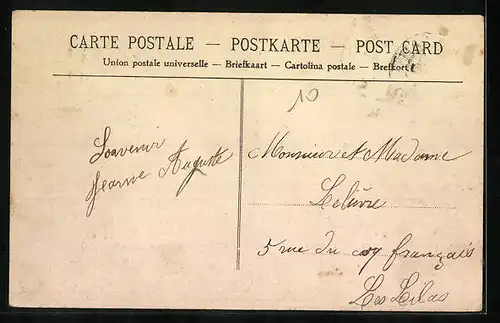 CARTE POSTALE — POSTKARTE — POST CARD
Union postale universelle — Briefkaart — Cartolina postale — Brefkort
10
Souvenir
Jeanne Auguste
Monsieur et Madame
Lelièvre
5 rue du coq français
Les Lilas